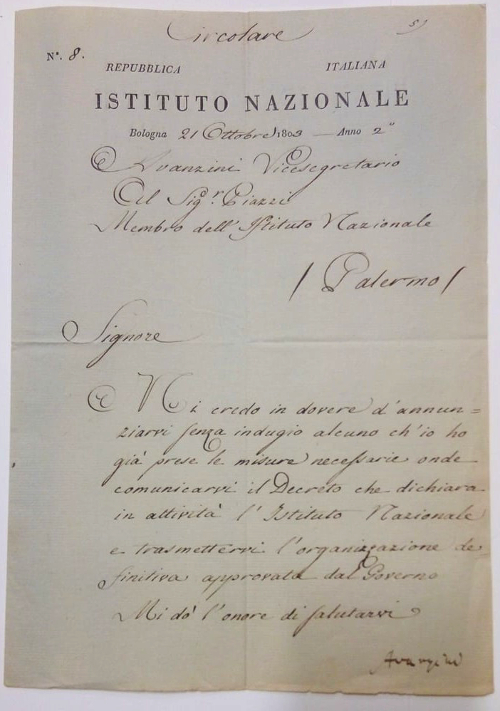 Circolare
5)
N°. 8.
REPUBBLICA ITALIANA
ISTITUTO NAZIONALE
Bologna 21 Ottobre 1803 — Anno 2°
Avanzini Vicesegretario
Al Sigr. Piazzi
Membro dell'Istituto Nazionale
/ Palermo /
Signore
Mi credo in dovere d'annun=
ziarvi senza indugio alcuno ch'io ho
già prese le misure necessarie onde
comunicarvi il Decreto che dichiara
in attività l'Istituto Nazionale
e trasmettervi l'organizzazione de
finitiva approvata dal Governo
Mi dò l'onore di salutarvi
Avanzini